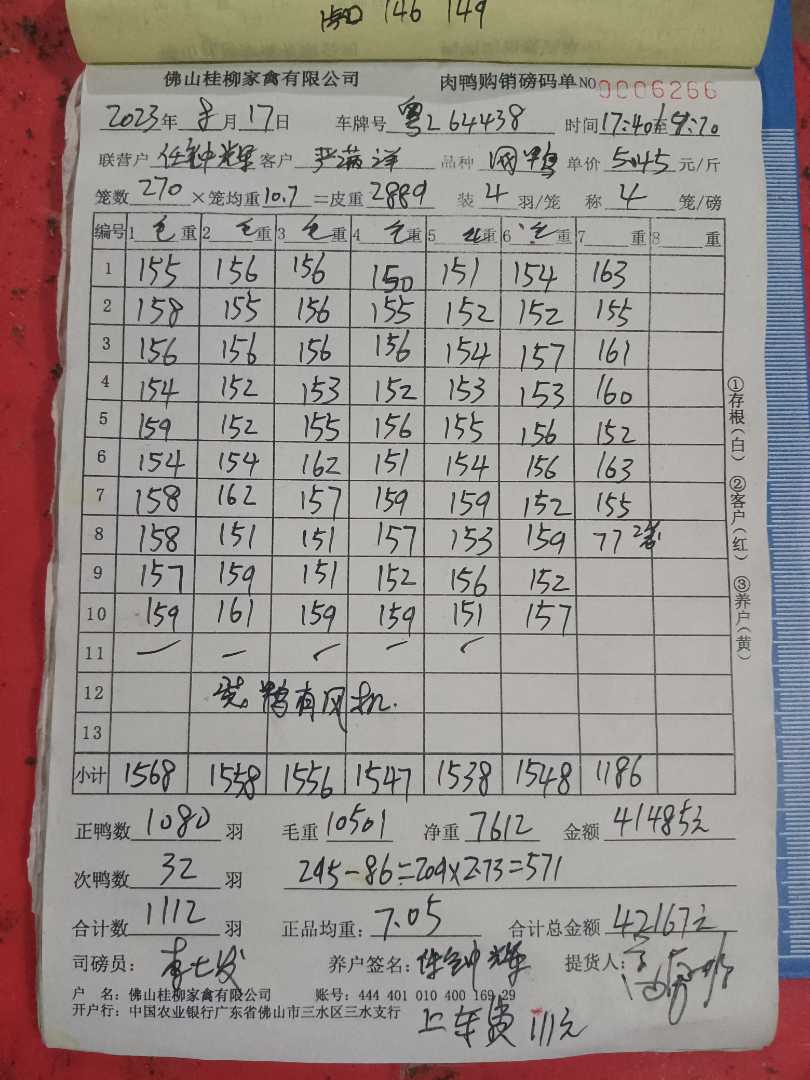 150 146 149
佛山桂柳家禽有限公司 肉鸭购销磅码单 NO 0006266
2023年 8月 17日 车牌号 粤L64438 时间 17:40至
联营户 任钟辉 客户 严满洋 品种 网鸭 单价 5.45 元/斤
笼数 270 ×笼均重 10.7 =皮重 2889 装 4 羽/笼 称 4 笼/磅
编号 1 毛 重 2 毛 重 3 毛 重 4 毛 重 5 毛 重 6 毛 重 7 重 8 重
1 155 156 156 150 151 154 163
2 158 155 156 155 152 152 155
3 156 156 156 156 154 157 161
4 154 152 153 152 153 153 160
5 159 152 155 156 155 156 152
6 154 154 162 151 154 156 163
7 158 162 157 159 159 152 155
8 158 151 151 157 153 159 77 2笼
9 157 159 151 152 156 152
10 159 161 159 159 151 157
11 — — — — —
12 装鸭有风机.
13
小计 1568 1558 1556 1547 1538 1548 1186
正鸭数 1080 羽 毛重 10501 净重 7612 金额 41485元
次鸭数 32 羽 295-86=209×2.73=571
合计数 1112 羽 正品均重: 7.05 合计总金额 42167元
司磅员: 李七发 养户签名: 任钟辉 提货人:
户 名: 佛山桂柳家禽有限公司 账号: 444 401 010 400 169 29
开户行: 中国农业银行广东省佛山市三水区三水支行
上车费 111元
①存根(白) ②客户(红) ③养户(黄)